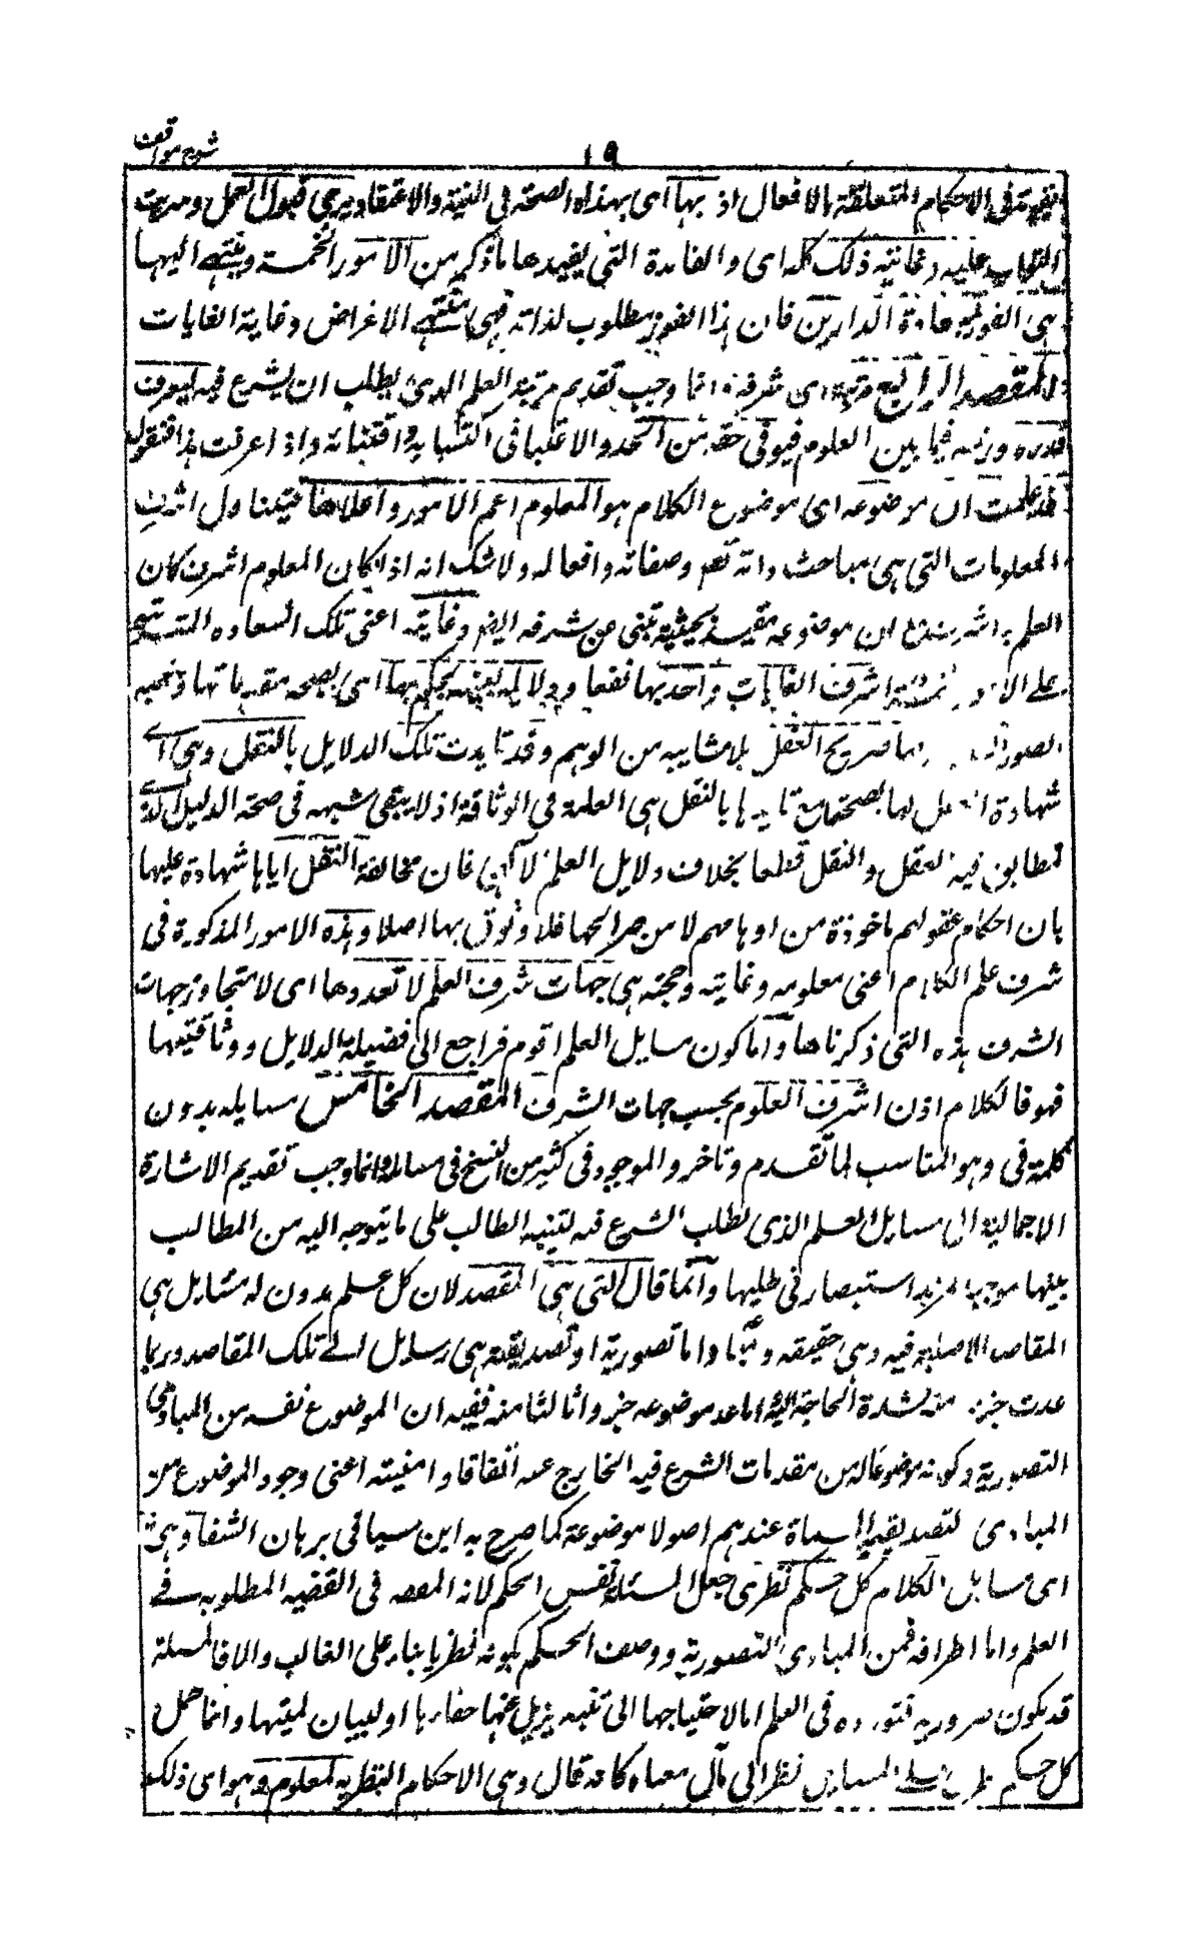 شرح مواقف
١٩
فى الاحكام المتعلقة بالافعال اذ بها اى بهذه الصحة فى النية والاعتقاد يرجى قبول العمل وترتب
الثواب عليه وغاية ذلك كله اى والفائدة التى يفيدها ما ذكر من الامور الخمسة وينتهى اليها
هى الفوز بسعادة الدارين فان هذا الفوز مطلوب لذاته فهى منتهى الاغراض وغاية الغايات
المقصد الرابع مرتبته اى شرفه وانما وجب تقديم مرتبة العلم الذى يطلب ان يشرع فيه ليعرف
قدره ورتبته فيما بين العلوم فيوفى حقه من الجد والاعتبار فى اكتسابه واقتنائه واذا عرفت هذا فنقول
قد علمت ان موضوعه اى موضوع الكلام هو المعلوم اعم الامور واعلاها فيتناول اشرف
المعلومات التى هى مباحث ذاته تعم وصفاته وافعاله ولا شك انه اذا كان المعلوم اشرف كان
العلم به اشرف مع ان موضوعه مقيد بحيثية تنبى عن شرفه ايضا وغايته اعنى تلك السعادة
على اشرف الغايات واجديها نفعا ودلايله يقينية يحكم بها اى بصحة مقدماتها وحقية
الصور صريح العقل بلا مشايبة من الوهم وقد تايدت تلك الدلايل بالنقل وهى اى
شهادة العقل لها بصحتها مع تايدها بالنقل هى الغاية فى الوثاقة اذ لا يبقى شبهة فى صحة الدليل الذى
تطابق فيه العقل والنقل قطعا بخلاف دلايل العلم الالهى فان مخالفة النقل اياها شهادة عليها
بان احكام عقولهم ماخوذة من اوهامهم لا من صرايحها فلا وثوق بها اصلا وهذه الامور المذكورة فى
شرف علم الكلام اعنى معلومه وغايته وحجته هى جهات شرف العلم لا تعدوها اى لا تتجاوز جهات
الشرف هذه التى ذكرناها واما كون مسايل العلم اقوم فراجع الى فضيلة الدلايل ووثاقتها
فهو فالكلام اذن اشرف العلوم بحسب جهات الشرف المقصد الخامس مسايله بدون
كلمة فى وهو المناسب لما تقدم وتاخر والموجود فى كثير من النسخ فى مسائله وانما وجب تقديم الاشارة
الاجمالية الى مسايل العلم الذى يطلب الشرع فيه لتنبيه الطالب على ما يتوجه اليه من المطالب
تنبيها موجبا لمزيد استبصار فى طلبها وانما قال التى هى المقصد لان كل علم مدون له مسايل هى
المقاصد الاصلية فيه وهى حقيقته ومباد اما تصورية او تصديقية هى وسايل الى تلك المقاصد وربما
عدت جزء منه لشدة الحاجة اليها واما عد موضوعه جزءا ثالثا منه ففيه ان الموضوع نفسه من المبادى
التصورية وكونه موضوعا له من مقدمات الشرع فيه الخارج عنه اتفاقا وانيته اعنى وجود الموضوع من
المبادى التصديقية المسماة عندهم اصولا موضوعة كما صرح به ابن سينا فى برهان الشفا وهى
اى مسايل الكلام كل حكم نظرى جعل المسئلة نفس الحكم لانه المقصود فى القضية المطلوبة فى
العلم واما اطرافه فمن المبادى التصورية ووصف الحكم بكونه نظريا بناء على الغالب والا فالمسئلة
قد تكون ضرورية فتورد فى العلم اما لاحتياجها الى تنبيه يزيل عنها خفاءها او لبيان لميتها وانما حمل
كل حكم نظرى على المسايل نظرا الى مآل معناه كانه قال وهى الاحكام النظرية لمعلوم وهو اى ذلك